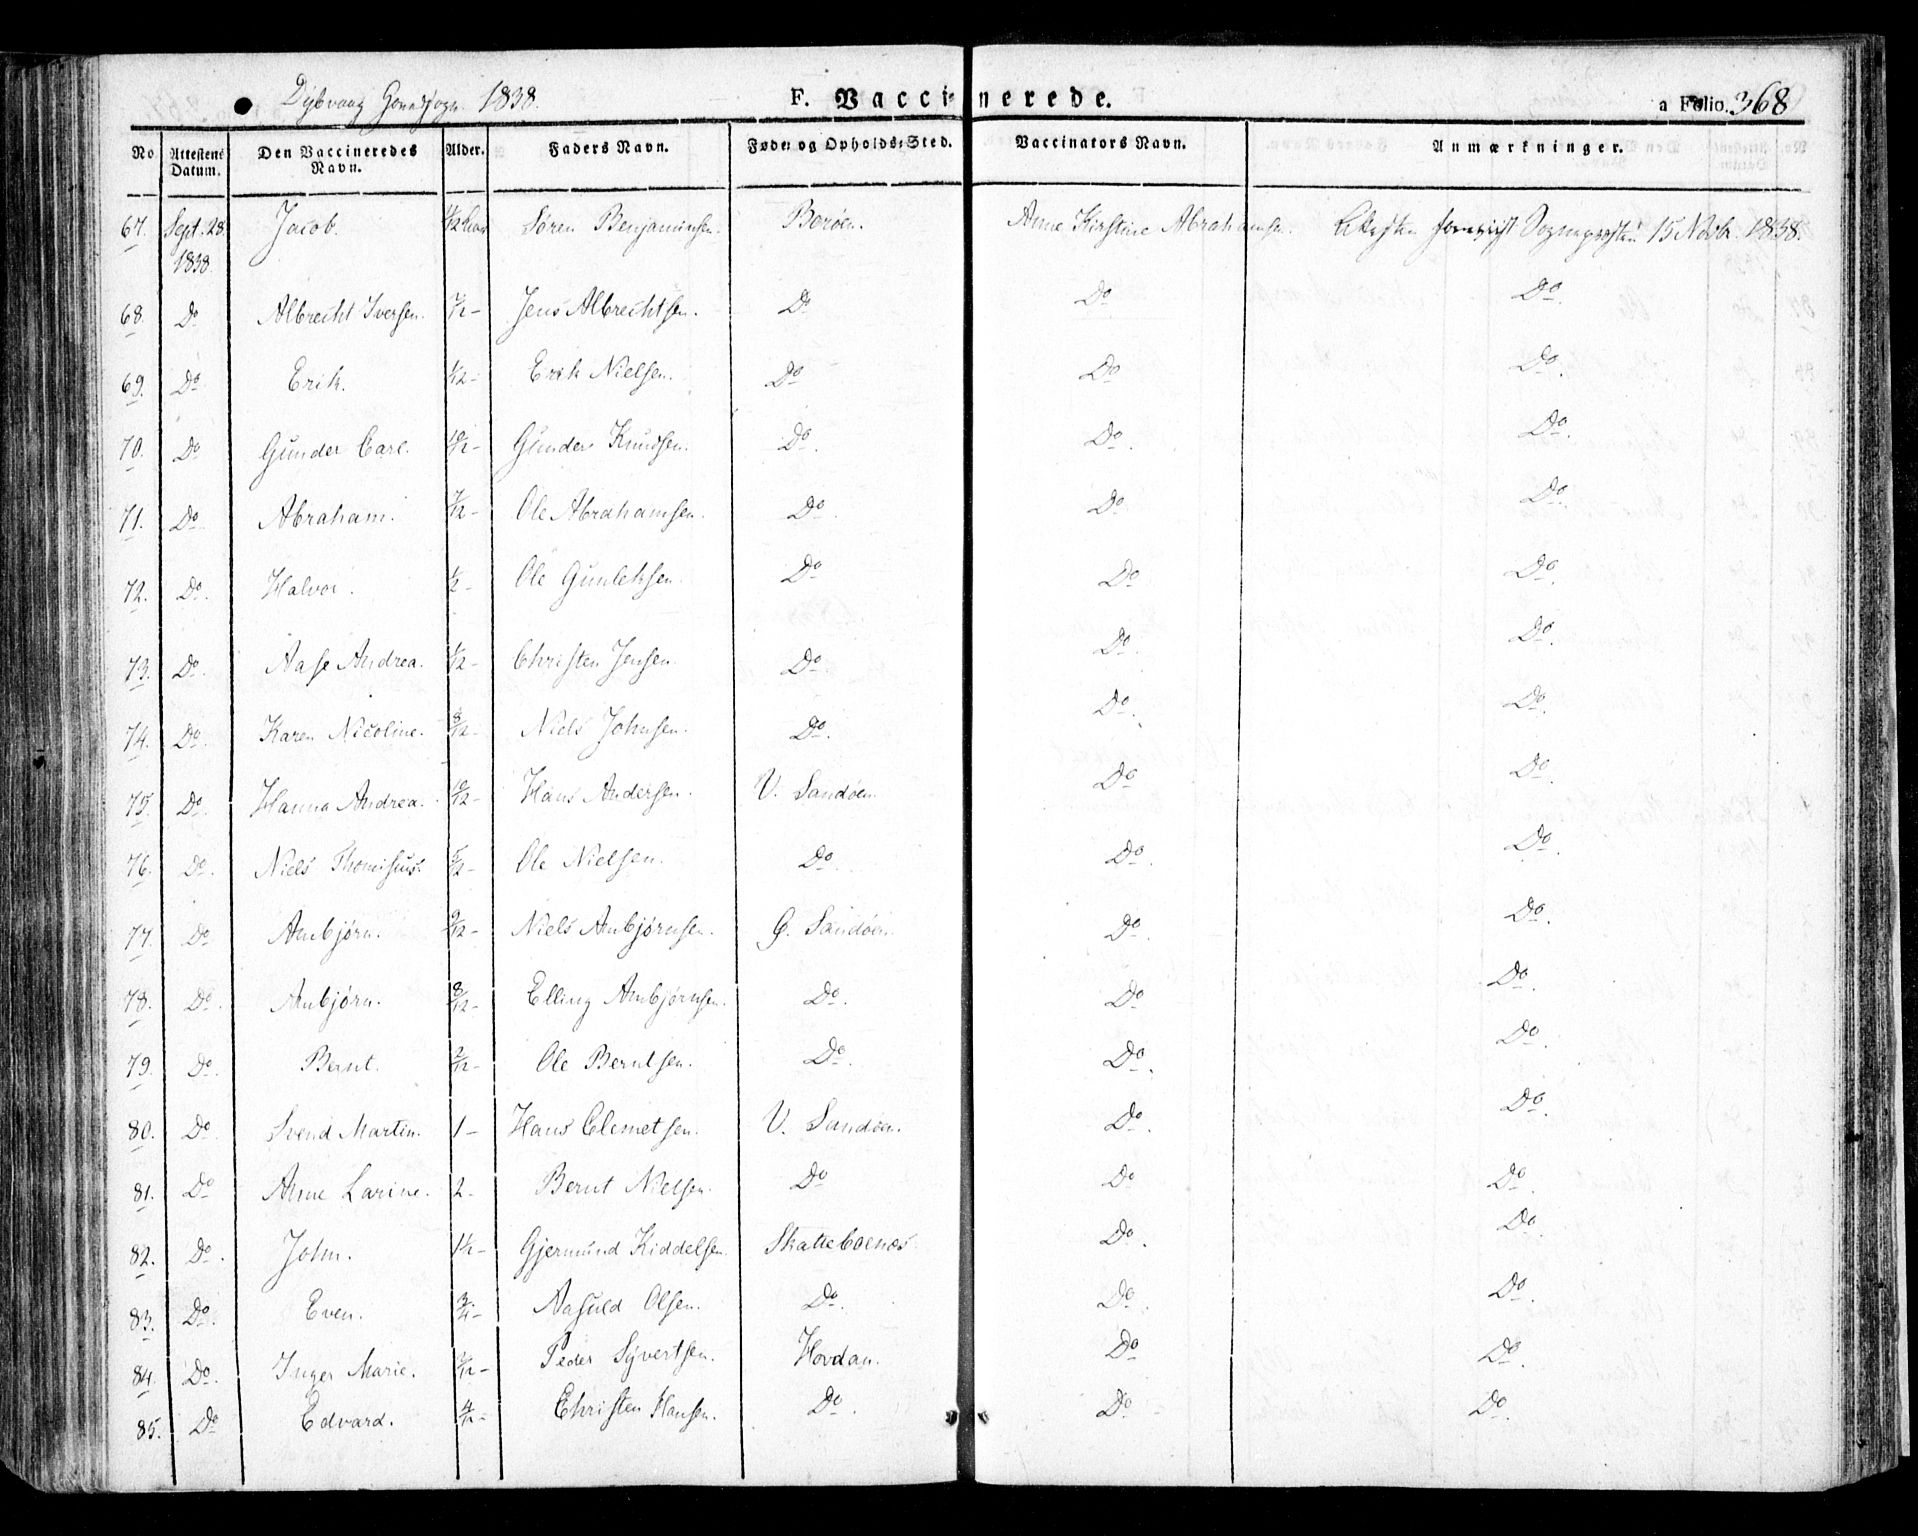 Dybvaag Hovedsogn 1838. F. Vaccinerede. a Folio. 368
No Attestens Datum. Den Vaccineredes Navn. Alder. Faders Navn. Føde- og Opholds-Sted. Vaccinators Navn. Anmærkninger.
67. Sept. 28 1838. Jacob. Søren Benjaminsen. Borøen. Anne Kirstine Abrahamsen. 15 Novbr. 1838.
68. Do Albrecht Iversen. 7/12 - Jens Albrechtsen. Do Do Do.
69. Do Erik. Erik Nielsen. Do Do Do.
70. Do Gunder Carl. 10/12 - Gunder Knudsen. Do. Do. Do.
71. Do Abraham. 7/12 - Ole Abrahamsen. Do. Do Do.
72. Do. Halvor. 1/2 - Ole Gunleksen. Do Do Do.
73. Do. Aase Andrea. 1/2 - Christen Jensen. Do Do. Do.
74. Do. Karen Nicoline. 8/12 - Niels Johnsen. Do. Do. Do.
75. Do Hanna Andrea. 10/12 - Hans Andersen. V. Sandøen. Do Do
76. Do. Niels 5/12 - Ole Nielsen. Do. Do. Do.
77. Do Anbjørn. 9/12 - Niels Anbjørnsen. G. Sandøen. Do. Do.
78. Do. Anbjørn. 8/12 - Elling Anbjørnsen. Do. Do Do.
79. Do. Bernt. 2/12 - Ole Berntsen. Do. Do. Do.
80. Do. Svend Martin. 1 - Hans Clemetsen. V. Sandøen. Do. Do.
81. Do Anne Larine. 2 - Bernt Nielsen. Do Do Do.
82. Do. John. 1 1/2 - Gjermund Kiddelsen. Skatteboenes. Do. Do.
83. Do. Even. 3/4 - Aasuld Olsen. Do. Do. Do.
84. Do. Inger Marie. Peder Syvertsen. Hovdan. Do Do.
85. Do Edvard. 4/12 - Christen Hansen. Do. Do Do.